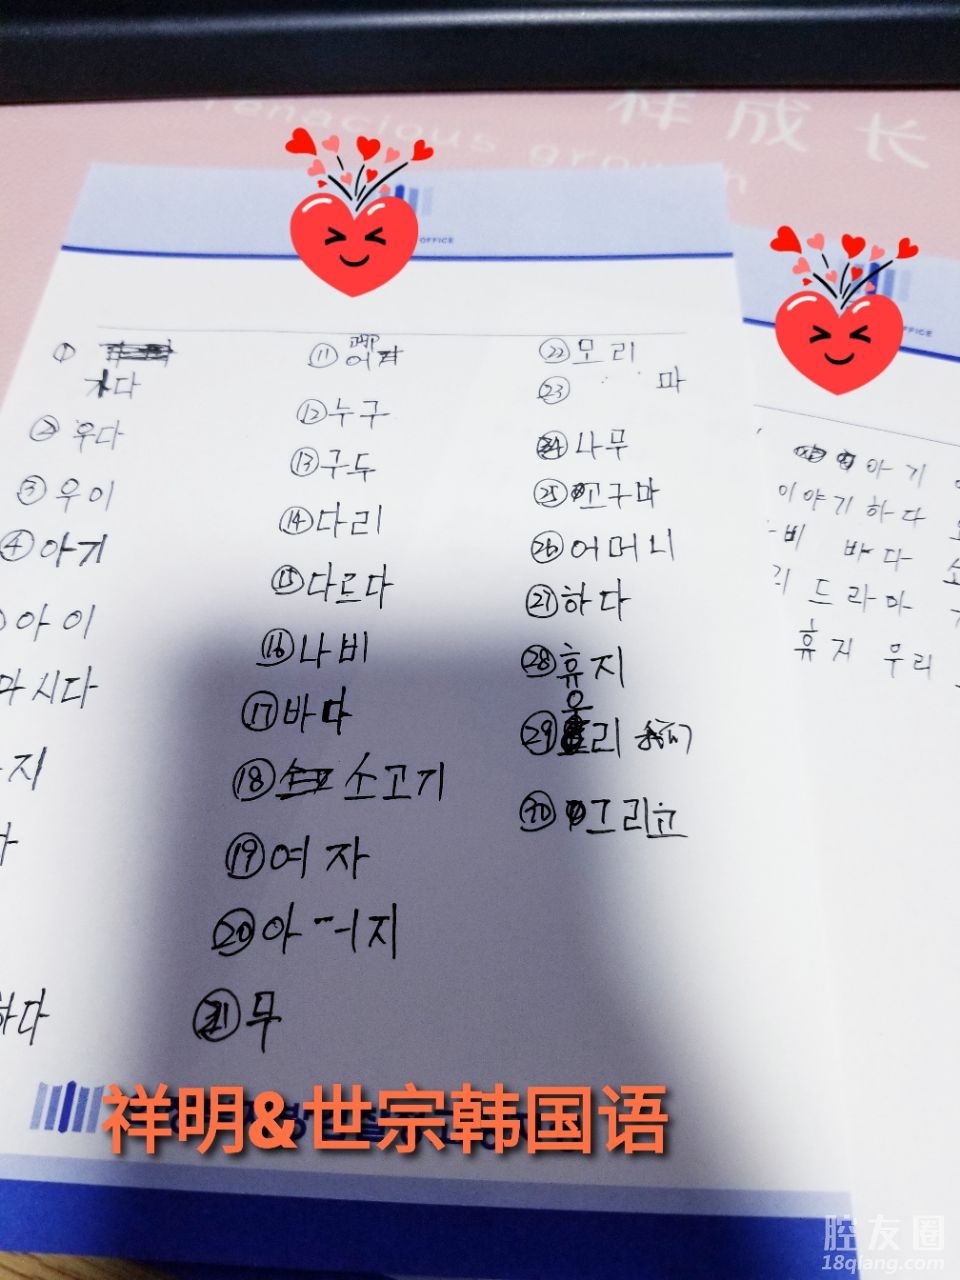 enacious growth
样成长
OFFICE
① 가다
② 우다
③ 우이
④ 아기
아이
마시다
지
하다
⑪ 어
⑫ 누구
⑬ 구두
⑭ 다리
⑮ 다르다
⑯ 나비
⑰ 바다
⑱ 소고기
⑲ 여자
⑳ 아 지
㉑ 무
㉒ 모리
㉓ 마
㉔ 나무
㉕ 고구마
㉖ 어머니
㉗ 하다
㉘ 휴지
㉙ 우리 我们
㉚ 그리고
아기
이야기하다
비 바다
리 드라마
휴지 우리
祥明&世宗韩国语
腔友圈
18qiang.com